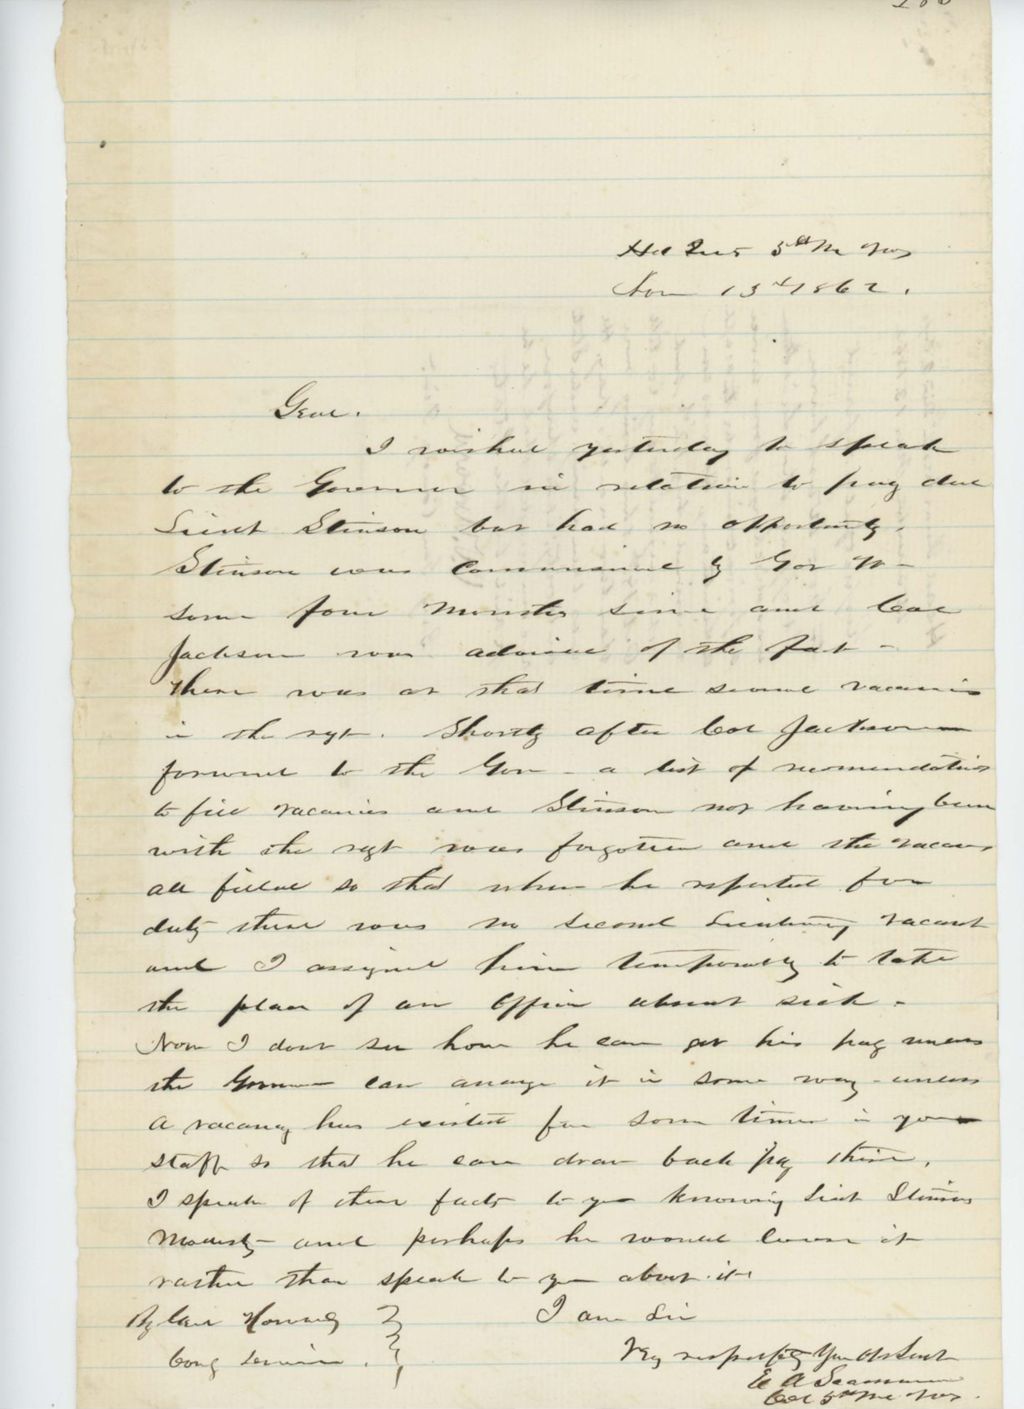 Hd Qrs 5th Me Vos
Nov 13th 1862.
Genl.
I wished yesterday to speak
to the Governor in relation to pay due
Lieut Stinson but had no opportunity.
Stinson was commissioned by Gov W—
some four months since and Col
Jackson was advised of the fact –
There was at that time several vacancies
in the regt. Shortly after Col Jackson
forwared to the Gov – a list of recomendations
to fill vacancies and Stinson not having been
with the regt was forgotten and the vacancies
all filled so that when he reported for
duty there was no second Lieutenancy vacant
and I assigned him temporarily to take
the place of an Officer absent sick –
Now I dont see how he can get his pay unless
the Governor can arange it in some way – unless
A vacancy has existed for some time in your
staff so that he can draw back pay there.
I speak of these facts to you knowing Lieut Stinsons
Modesty and perhaps he would loose it
rather than speak to you about it.
I am Sir
Very respectfully Your Obt Servt
E A Scamman
Col 5th Me Vos.
Howard
Comg Division.